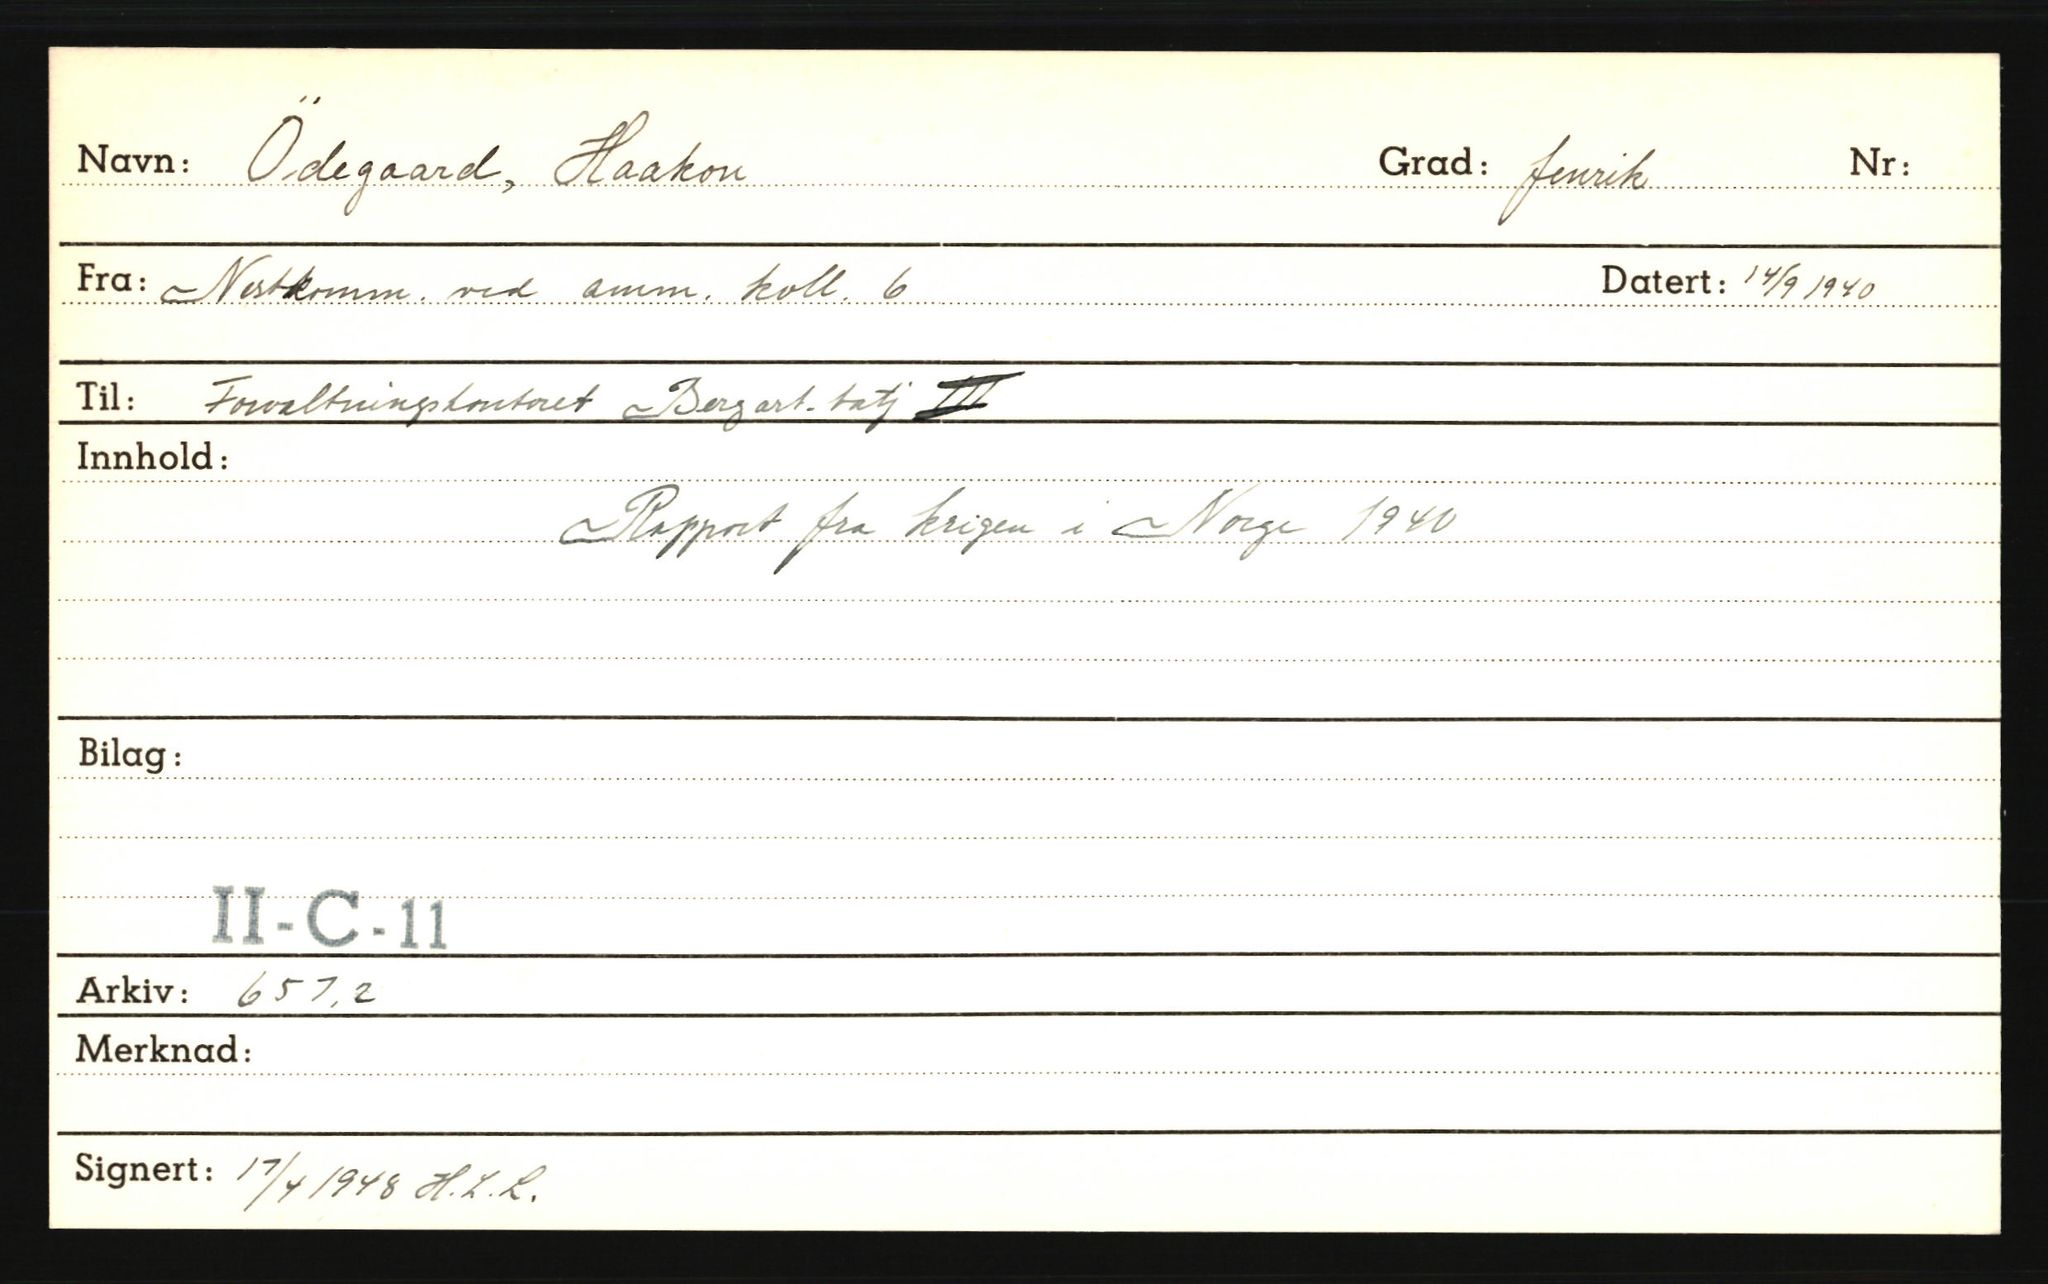 Navn: Ödegaard, Haakon Grad: fenrik Nr:
Fra: Nestkomm. ved amm. koll. 6 Datert: 14/9 1940
Til: Forvaltningskontoret Bergart. batj III
Innhold:
Rapport fra krigen i Norge 1940
Bilag:
II-C-11
Arkiv: 657.2
Merknad:
Signert: 17/4 1948 H.L.L.